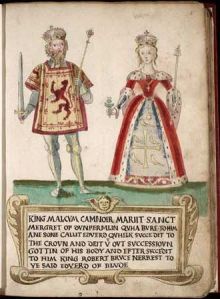 KING MALCOM CAMNOIR MARIIT SANCT
MERGRET OF DUNFERMLIN QUHA BURE TO HIM
ANE SONE CALLIT EDVERD QUHILK SUCCEDIT TO
THE CROVN AND DEIT VTQVT SUCCESSIOVN
GOTTIN OF HIS BODY AND EFTER SUCCEDIT
TO HIM KING ROBERT BRUCE NERREST TO
YE SAID EDVERD OF BLVDE